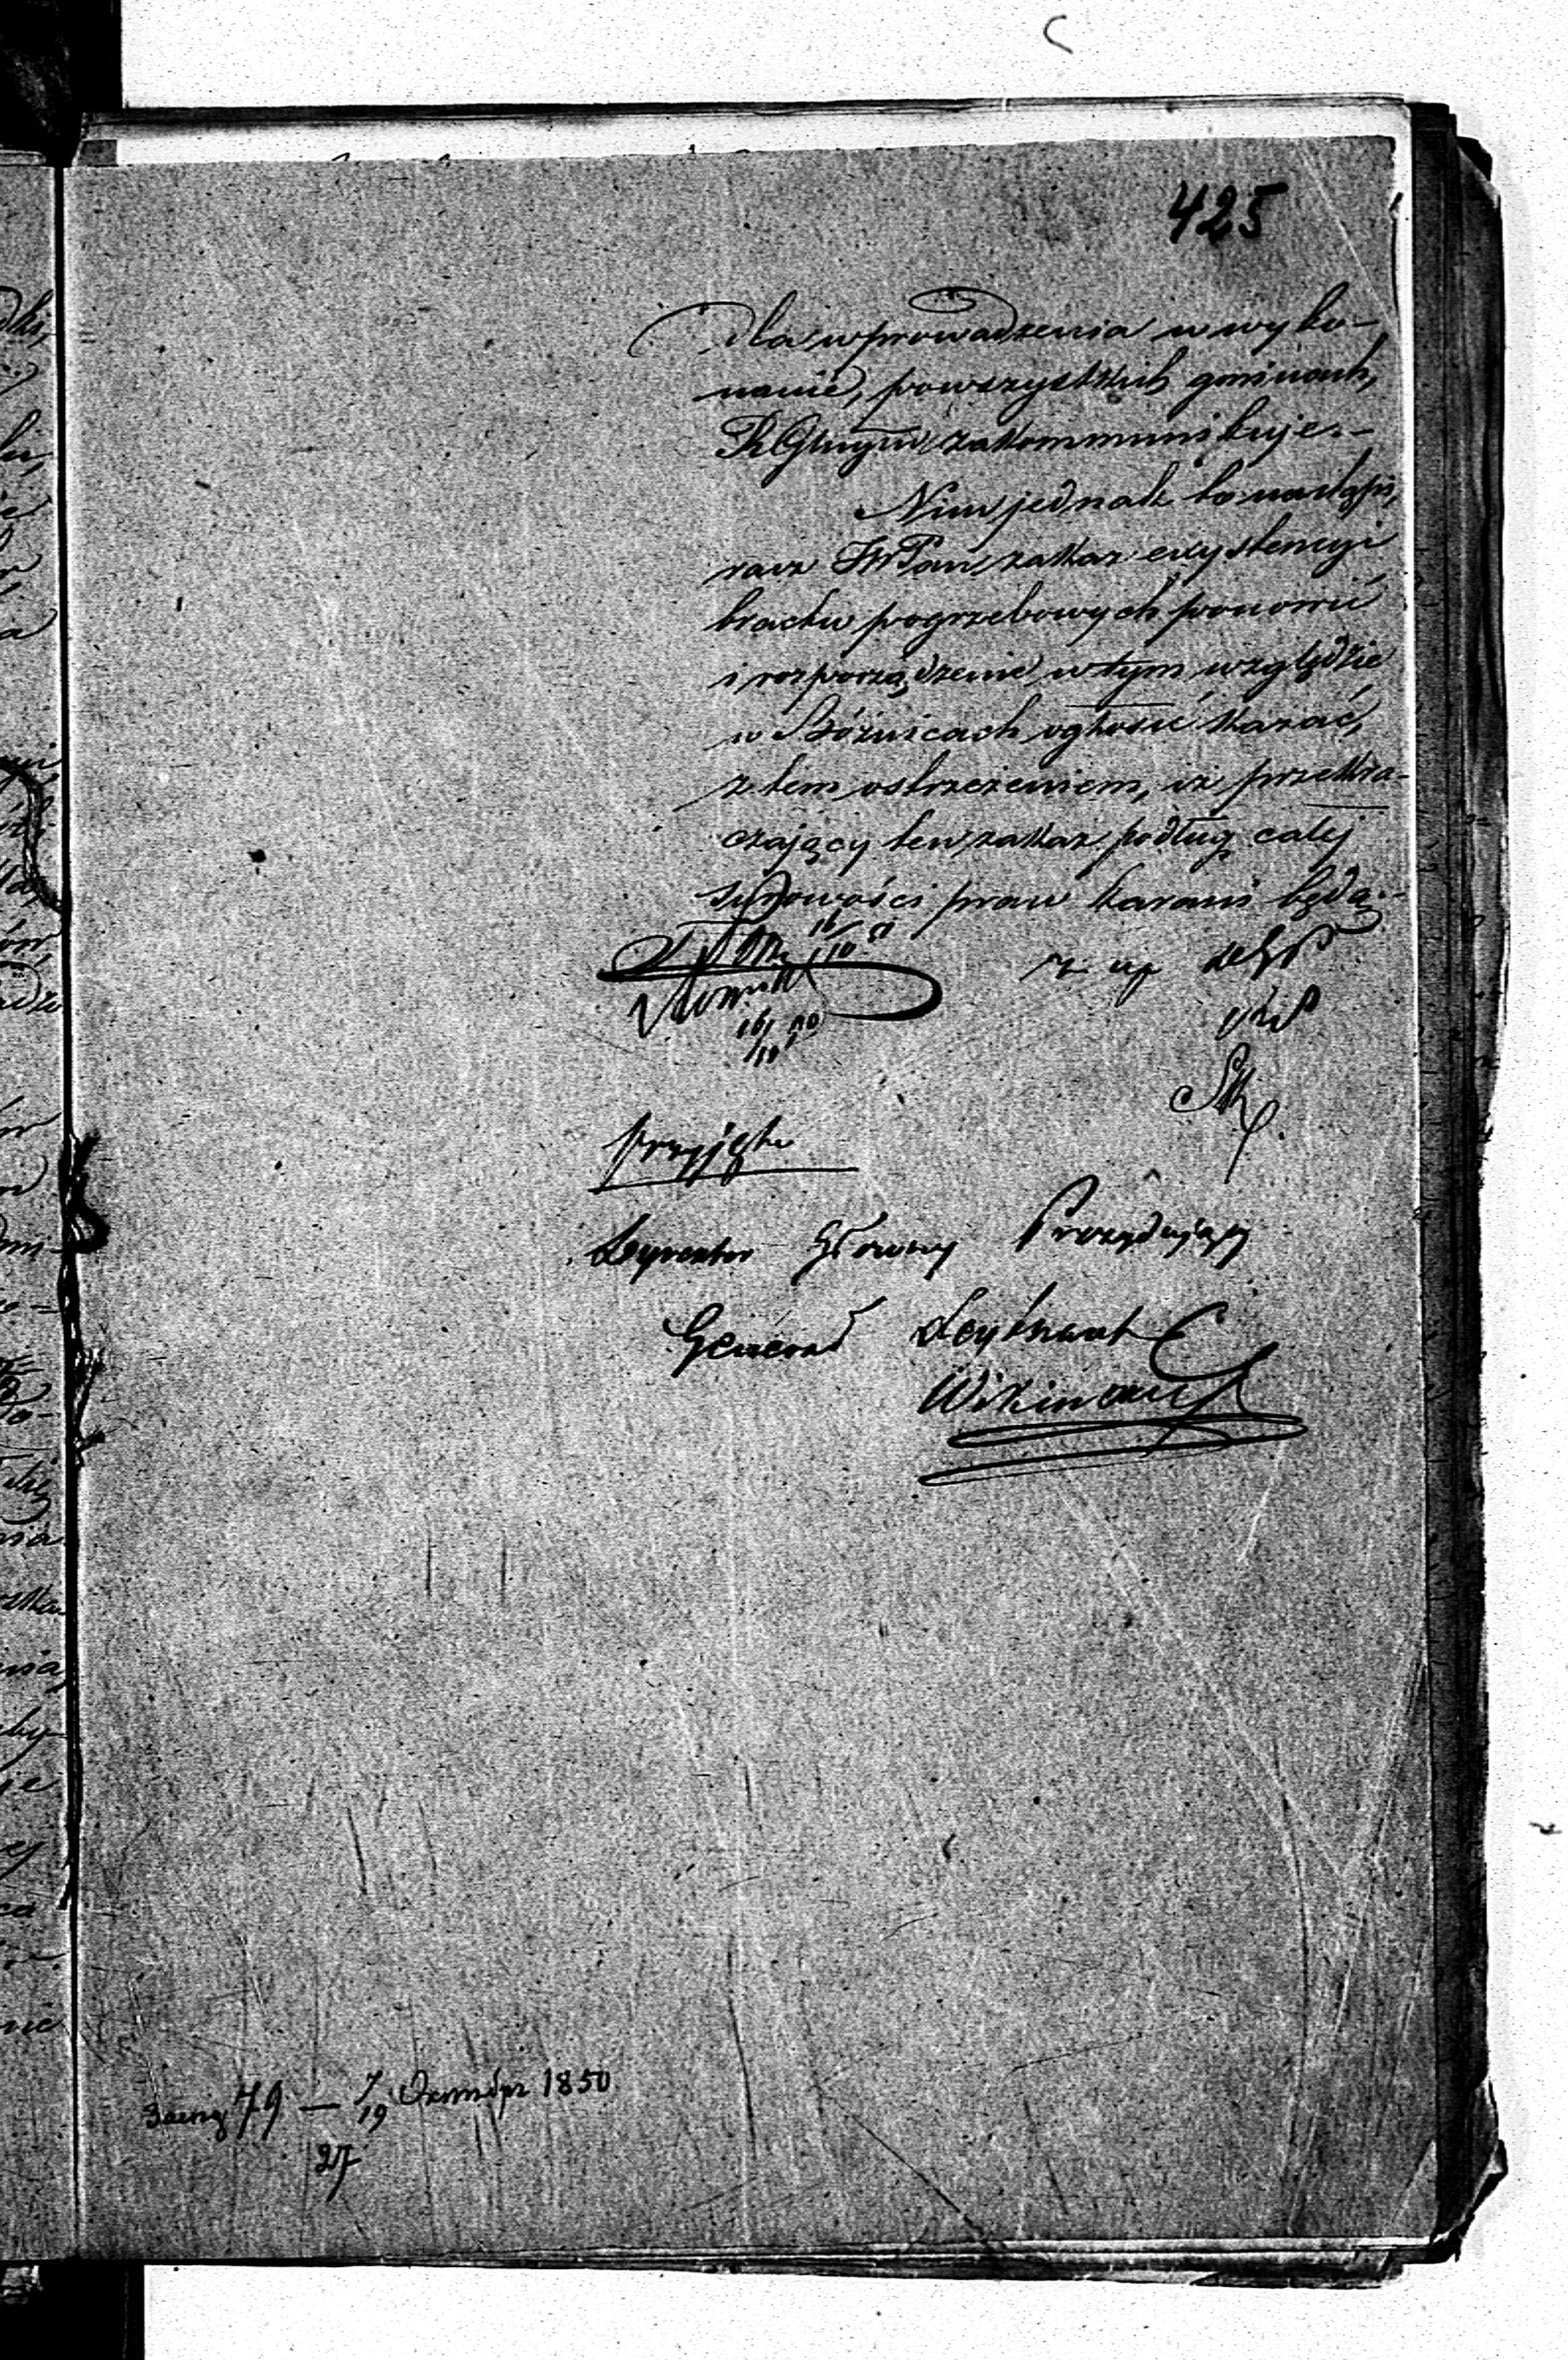 425
dla wprowadzenia w wyko-
nanie, po wszystkich gminach,
zakommunikuje.-
Nim jednak to nastąpi,
racz JW Pan zakaz exystencyi
bractw pogrzebowych ponowić
i rozporządzenie w tym względzie
w Bóżnicach ogłosić kazać,
z tem ostrzeżeniem, iż przekra-
czający ten zakaz podług całej
surowości praw karani będą.-
16/10
16/10 50
przyjęto
Dyrektor Główny Prezydujący
Generał Leytnant
Wikiński
79 — 7/19 Октября 1850
27